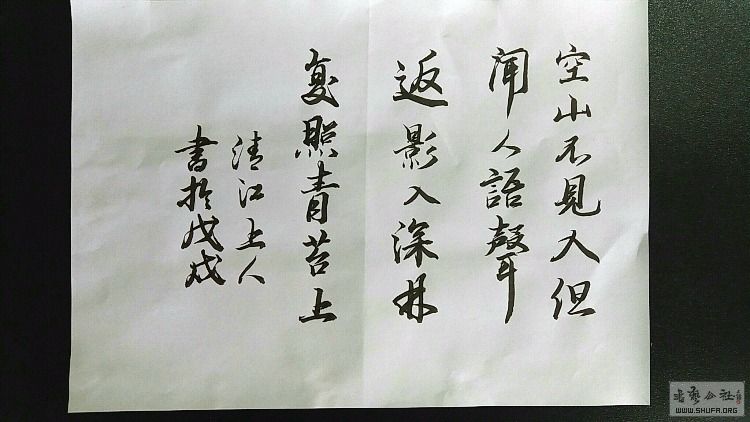 空山不見人但
聞人語聲
返影入深林
复照青苔上
清江上人
書於戊戌
书艺公社
WWW.SHUFA.ORG